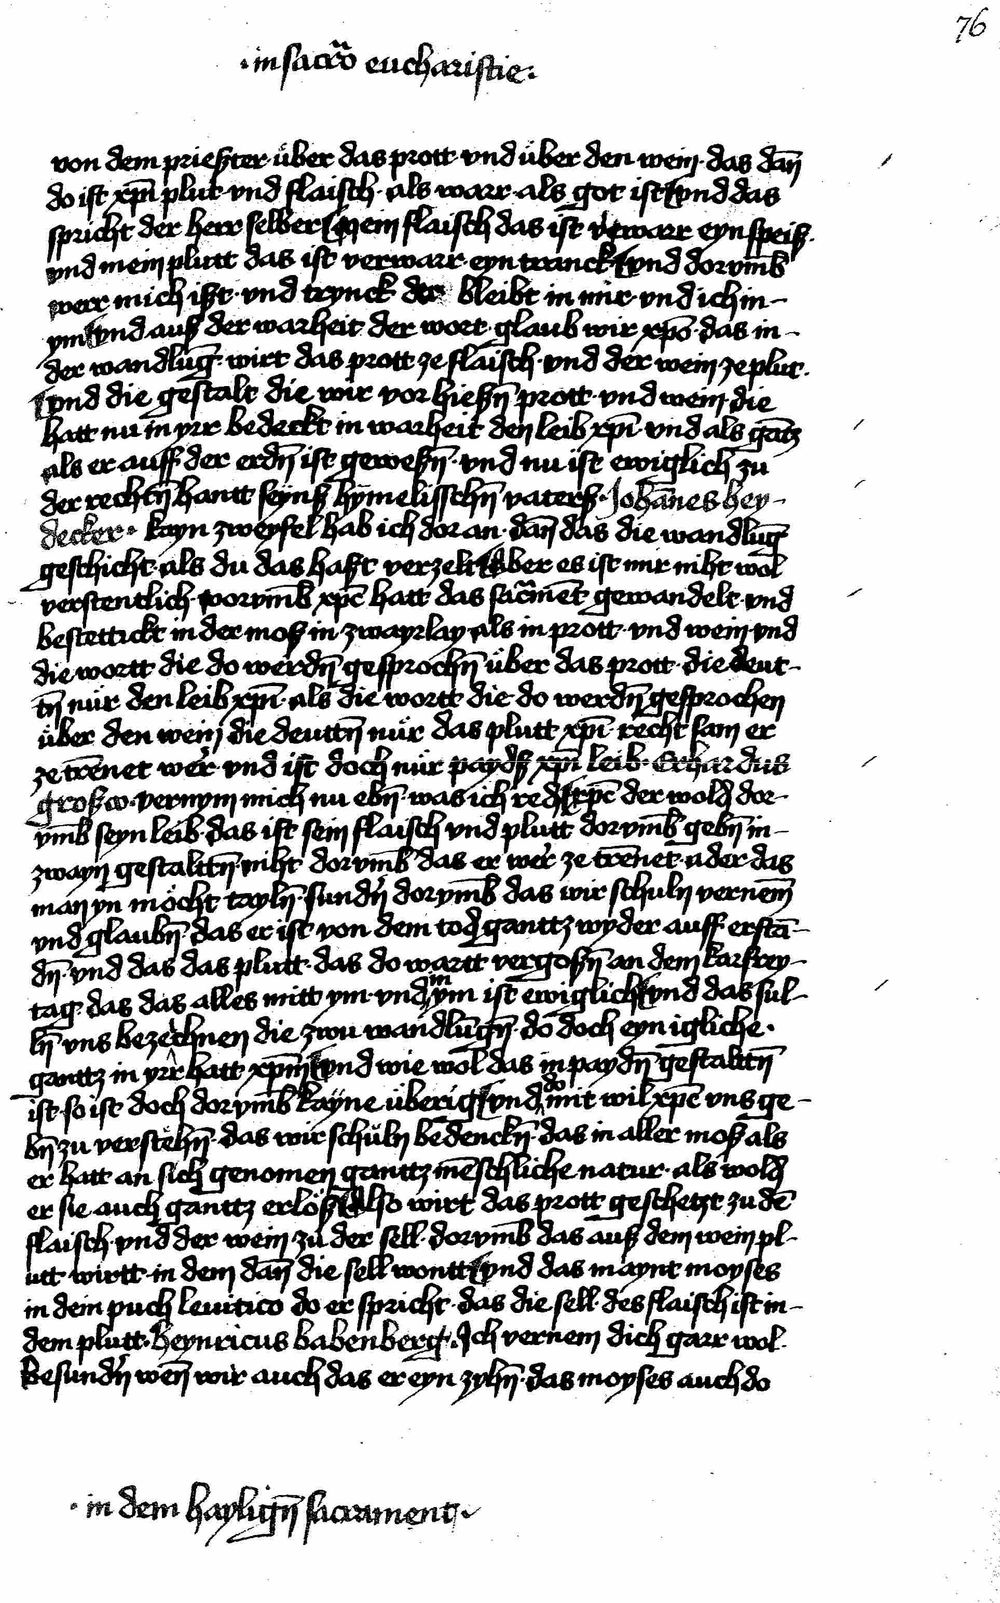 76
·in sacr̃o eucharistie·
von dem prießter· über das prott· vnd über den wein· das dañ
do ist xp̄i plut· vnd flaisch· als warr· als got ist vnd das
spricht der herr selber Mein flaisch das ist verwarr eyn speiß·
vnd mein plutt das ist verwarr· eyn tranck vnd dorvm̄b
werr mich ißt· vnd trynck der bleibt in mir· vnd ich in-
ym vnd auß der warheit der wort· glaub wir xp̄o· das in-
der wandlūg· wirt das prott ze flaisch· vnd der wein ze plut·
vnd die gestalt die wir vor hießn̄ prott· vnd wein· die
hatt nu in yrr bedeckt in warheit den leib xp̄i· vnd als gātz
als er auff der erdn̄ ist geweßn̄· vnd nu ist ewiglich zu
der rechtn̄ hantt seynß hymelisschn̄ vaterß· Johānes hey-
decker· kayn zweyfel hab ich dor an· dañ das die wandlūg
geschicht· als du das haßt verzelt Aber es ist mir niht wol
verstentlich· worvm̄b xp̄c hatt das sacr̄mēt gewandelt· vnd
bestettickt in der moß in zwayrlay als in prott· vnd wein vnd
die wortt die do werdn̄ gesprochn̄ über das prott· die deut-
tn̄ nür den leib xp̄i· als die wortt die do werdn̄ gesprochen
über den wein die deuttn̄ nür das plutt xp̄i· recht sam er
ze trēnet wer· vnd ist doch nür payds xp̄i leib· Erhardus
groß co· vernym mich nu ebn̄· was ich red xp̄c der wold dor-
vm̄b seyn leib· das ist sein flaisch vnd plutt dorvm̄b gebn̄ in-
zwayn gestalttn̄· niht dorvm̄b das er wer ze trēnet· ader das
man yn möcht tayln̄· sundn̄ dorvm̄b das wir schuln vernem̄
vnd glaubn̄· das er ist von dem tod ganttz wyder auff erstā-
dn̄· vnd das das plutt· das do wartt vergoßn̄ an dem karfrey-
tag· das das alles mitt ym· vnd in ym ist ewiglich vnd das sul-
ln̄ vns bezechnen die zwu wandlūgn̄· do doch eyn igliche·
ganttz in yrr hatt xp̄m vnd wie wol das in paydn̄ gestalttn̄
ist· so ist doch dorvm̄b kayne überig vnd do mit wil xp̄c vns ge-
bn̄ zu verstehn̄· das wir schuln bedenckn̄· das in aller moß als
er hatt an sich genomen ganttz mēschliche natur· als wold
er sie auch ganttz erlößn Also wirt das prott geschetzt zu dē
flaisch· vnd der wein zu der sell· dorvm̄b das auß dem wein pl-
utt wirtt· in dem dañ die sell wontt vnd das maynt moyses
in dem puch leuitico do er spricht· das die sell· des flaisch ist in-
dem plutt· Heynricus babenberg· Ich vernem dich garr wol·
Besundn̄ wen̄ wir auch das er eyn zyhn̄· das moyses auch do
·in dem haylign̄ sacrament·